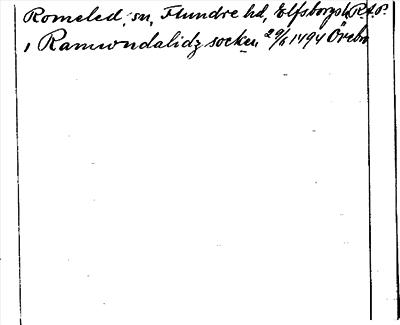 Romeled, sn, Flundre hd, Elfsborgs l, R.A.P.
i Ramundalidz socken 29/6 1494 Örebro